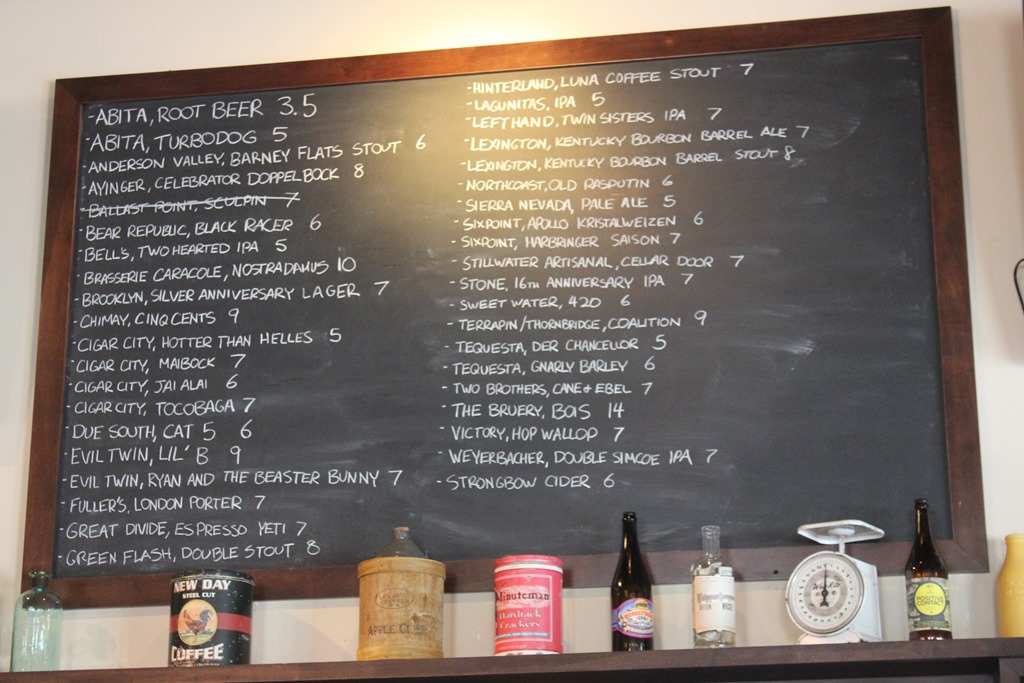 -ABITA, ROOT BEER 3.5
-ABITA, TURBODOG 5
-ANDERSON VALLEY, BARNEY FLATS STOUT 6
-AYINGER, CELEBRATOR DOPPELBOCK 8
-BALLAST POINT, SCULPIN 7
-BEAR REPUBLIC, BLACK RACER 6
-BELL'S, TWO HEARTED IPA 5
-BRASSERIE CARACOLE, NOSTRADAMUS 10
-BROOKLYN, SILVER ANNIVERSARY LAGER 7
-CHIMAY, CINQ CENTS 9
-CIGAR CITY, HOTTER THAN HELLES 5
-CIGAR CITY, MAIBOCK 7
-CIGAR CITY, JAI ALAI 6
-CIGAR CITY, TOCOBAGA 7
-DUE SOUTH, CAT 5 6
-EVIL TWIN, LIL' B 9
-EVIL TWIN, RYAN AND THE BEASTER BUNNY 7
-FULLER'S, LONDON PORTER 7
-GREAT DIVIDE, ESPRESSO YETI 7
-GREEN FLASH, DOUBLE STOUT 8
-HINTERLAND, LUNA COFFEE STOUT 7
-LAGUNITAS, IPA 5
-LEFTHAND, TWIN SISTERS IPA 7
-LEXINGTON, KENTUCKY BOURBON BARREL ALE 7
-LEXINGTON, KENTUCKY BOURBON BARREL STOUT 8
-NORTHCOAST, OLD RASPUTIN 6
-SIERRA NEVADA, PALE ALE 5
-SIXPOINT, APOLLO KRISTALWEIZEN 6
-SIXPOINT, HARBRINGER SAISON 7
-STILLWATER ARTISANAL, CELLAR DOOR 7
-STONE, 16TH ANNIVERSARY IPA 7
-SWEET WATER, 420 6
-TERRAPIN/THORNBRIDGE, COALITION 9
-TEQUESTA, DER CHANCELLOR 5
-TEQUESTA, GNARLY BARLEY 6
-TWO BROTHERS, CANE & EBEL 7
-THE BRUERY, BOIS 14
-VICTORY, HOP WALLOP 7
-WEYERBACHER, DOUBLE SIMCOE IPA 7
-STRONGBOW CIDER 6
NEW DAY
STEEL CUT
COFFEE
APPLE
Minuteman
Hardtack
Crackers
POSITIVE
CONTACT